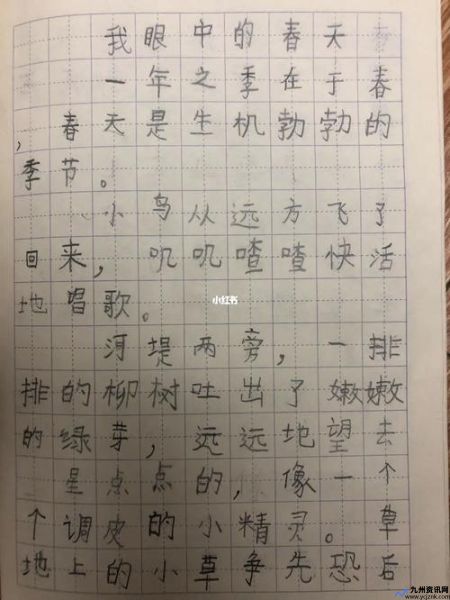 我眼中的春天
一年之季在于春
，春天是生机勃勃的
季节。
小鸟从远方飞了
回来，叽叽喳喳快活
地唱歌。
河堤两旁，一排
排的柳树吐出了嫩嫩
的绿芽，远远地望去
星点点的，像一个
个调皮的小精灵。草
地上的小草争先恐后
小红书
九州资讯网
www.ycjznk.com